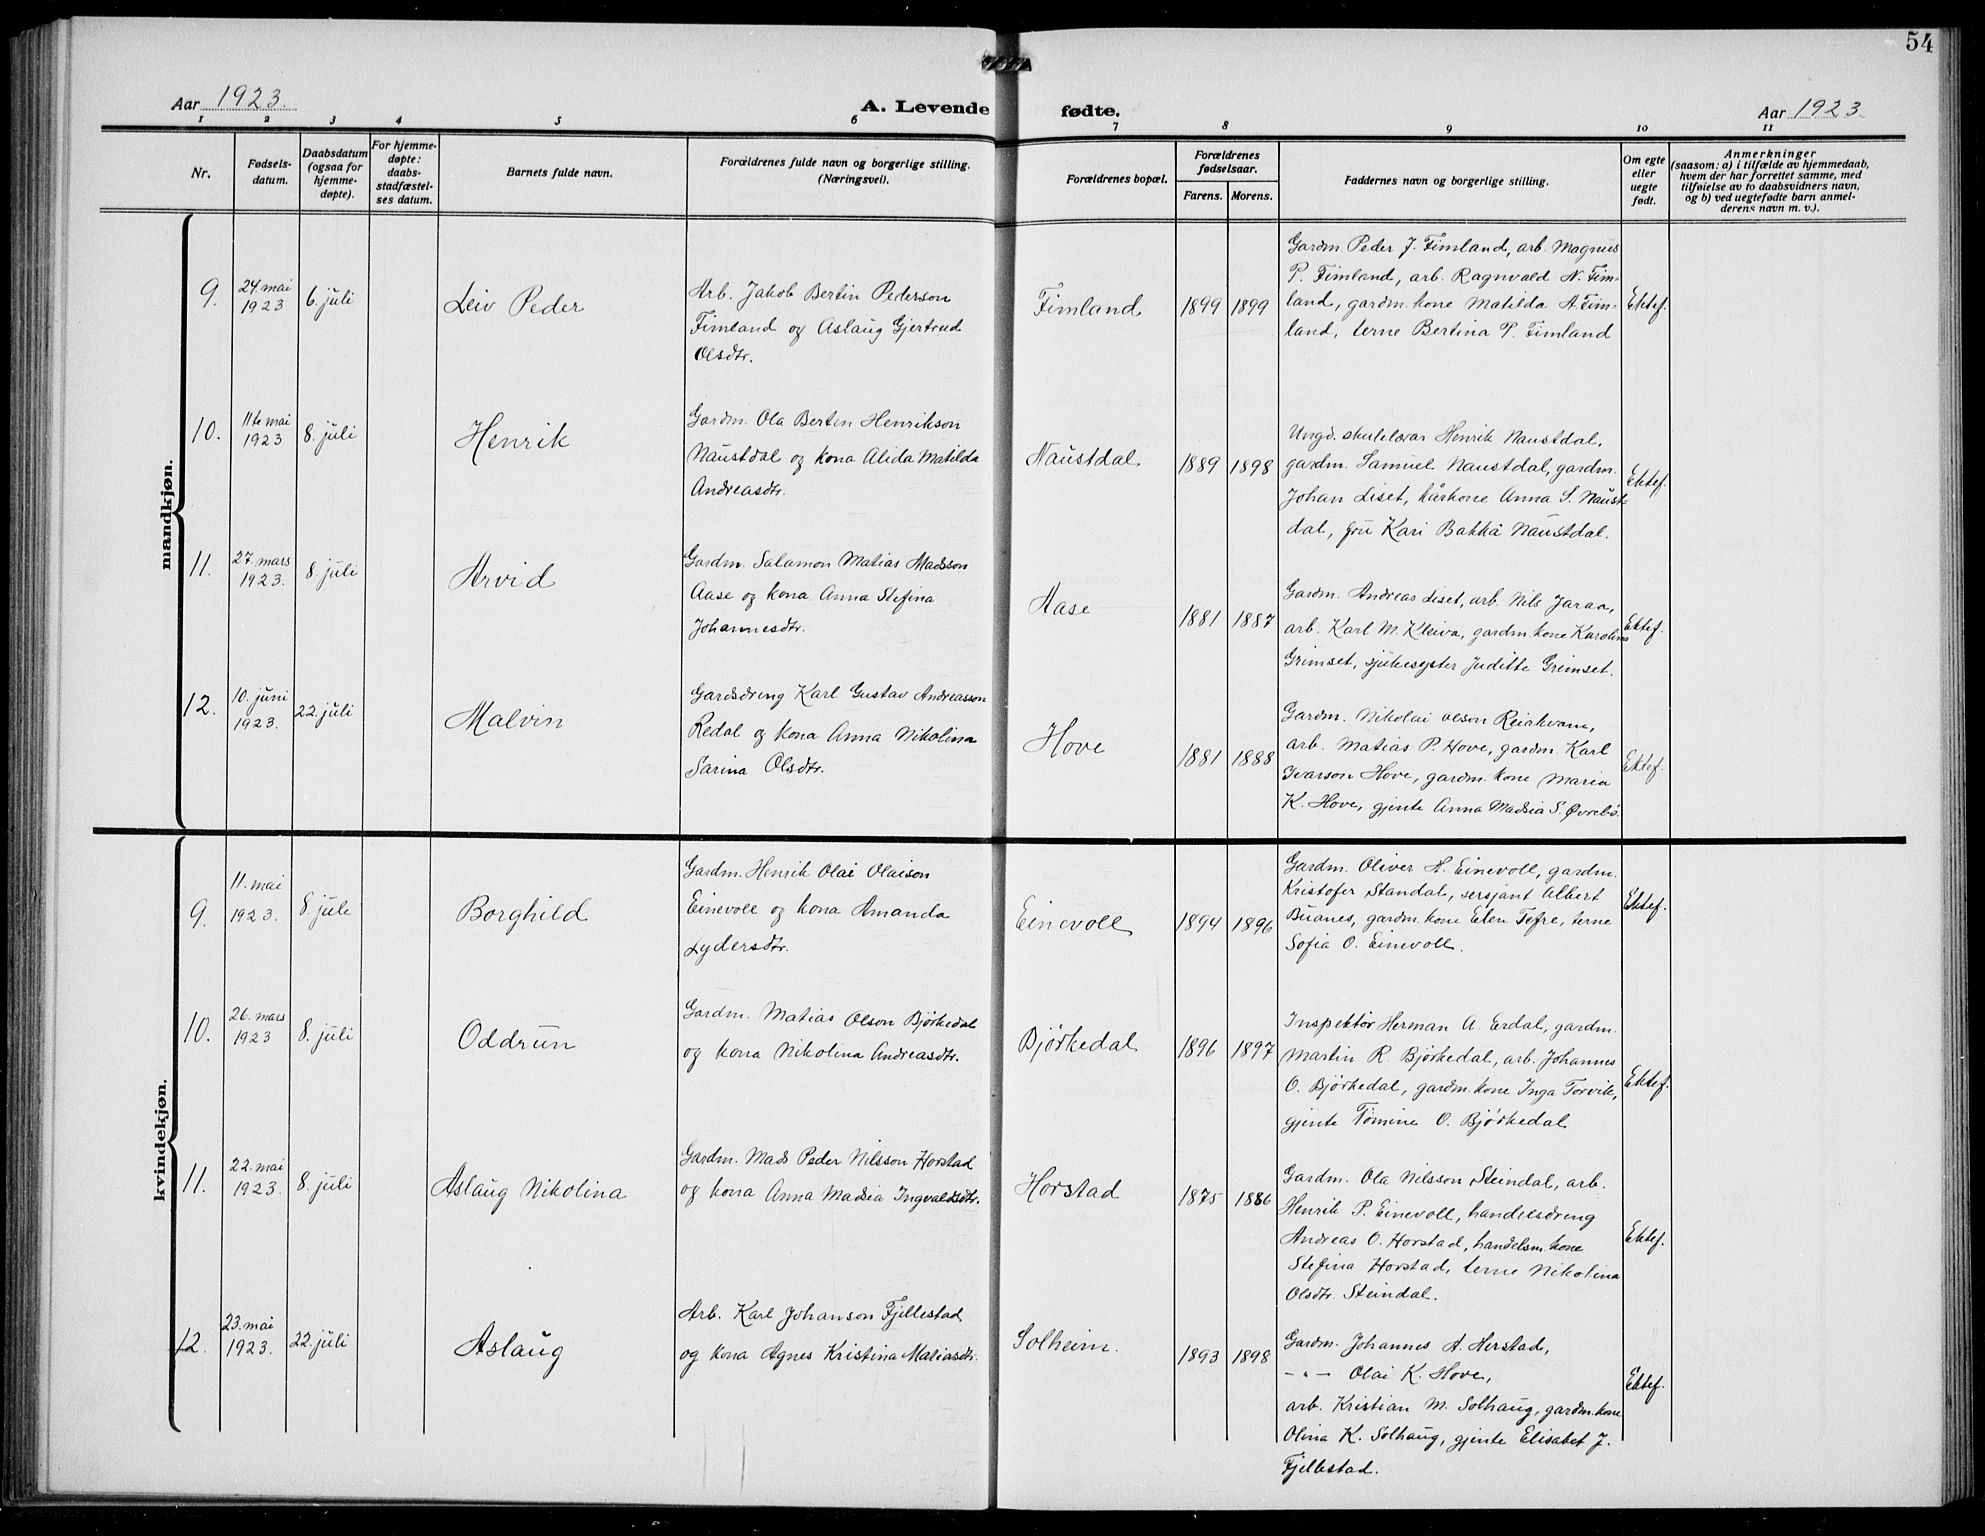 54
Aar 1923.
A. Levende fødte.
Aar 1923.
1 2 3 4 5 6 7 8 9 10 11
Nr.
Fødsels-
datum.
Daabsdatum
(ogsaa for
hjemme-
døpte).
For hjemme-
døpte:
daabs-
stadfæstel-
ses datum.
Barnets fulde navn.
Forældrenes fulde navn og borgerlige stilling.
(Næringsvei).
Forældrenes bopæl.
Forældrenes
fødselsaar.
Farens. Morens.
Faddernes navn og borgerlige stilling.
Om egte
eller
uegte
født.
Anmerkninger
(saasom: a) i tilfælde av hjemmedaab,
hvem der har forrettet samme, med
tilføielse av to daabsvidners navn,
og b) ved uegtefødte barn anmel-
derens navn m. v.).
mandkjøn.
9.
24. mai
1923
6. juli
Leiv Peder
Arb. Jakob Bertin Pederson
Fimland og Aslaug Gjertrud
Olsdtr.
Fimland
1899 1899
Gardm. Peder J. Fimland, arb. Magnus
P. Fimland, arb. Ragnvald N. Fim-
land, gardm. kone Matilda A. Fim-
land, terne Bertina P. Fimland
Ektef.
10.
11te mai
1923
8. juli
Henrik
Gardm. Ola Berten Henrikson
Naustdal og kona Alida Matilda
Andreasdtr.
Naustdal
1889 1898
Ungd. skulelærar Henrik Naustdal,
gardm. Samuel Naustdal, gardm.
Johan Liset, kårkone Anna S. Naust-
dal, fru Kari Bakkå Naustdal.
Ektef.
11.
27. mars
1923.
8. juli
Arvid
Gardm. Salamon Matias Madsson
Aase og kona Anna Stefina
Johannesdtr.
Aase
1881 1887
Gardm. Andreas Liset, arb. Nils Jaraa,
arb. Karl M. Kleiva, gardm. kone Karolina
Grimset, sjukesyster Juditte Grimset.
Ektef.
12.
10. juni
1923.
22. juli
Malvin
Gardsdreng Karl Gustav Andreasson
Redal og kona Anna Nikolina
Sarina Olsdtr.
Hove
1881 1888
Gardm. Nikolai Olson Reiakvam,
arb. Matias P. Hove, gardm. Karl
Ivarson Hove, gardm. kone Maria
K. Hove, gjente Anna Madsia S. Øvrebø.
Ektef.
kvindekjøn.
9.
11. mai
1923.
8. jule
Borghild
Gardm. Henrik Olai Olaison
Einevoll og kona Amanda
Lydersdtr.
Einevoll
1894 1896
Gardm. Oliver H. Einevoll, gardm.
Kristofer Standal, sersjant Albert
Buanes, gardm. kone Elen Tefre, terne
Sofia O. Einevoll.
Ektef.
10.
26. mars
1923
8. juli
Oddrun
Gardm. Matias Olson Bjørkedal
og kona Nikolina Andreasdtr.
Bjørkedal
1896 1897
Inspektør Herman A. Erdal, gardm.
Martin R. Bjørkedal, arb. Johannes
O. Bjørkedal, gardm. kone Inga Torvik,
gjente Tomine O. Bjørkedal
Ektef.
11.
22. mai
1923.
8. juli
Aslaug Nikolina
Gardm. Mads Peder Nilsson Horstad
og kona Anna Madsia Ingvaldsdtr.
Horstad
1875 1886
Gardm. Ola Nilsson Steindal, arb.
Henrik P. Einevoll, handelsdreng
Andreas O. Horstad, handelsm. kone
Stefina Horstad, terne Nikolina
Olsdtr. Steindal.
Ektef.
12.
23. mai
1923.
22. juli
Aslaug
Arb. Karl Johanson Fjellestad
og kona Agnes Kristina Matiasdtr.
Solheim.
1893 1898
Gardm. Johannes A. Herstad,
– " – Olai K. Hove,
arb. Kristian M. Solhaug, gardm. kone
Olina K. Solhaug, gjente Elisabet J.
Fjellestad.
Ektef.